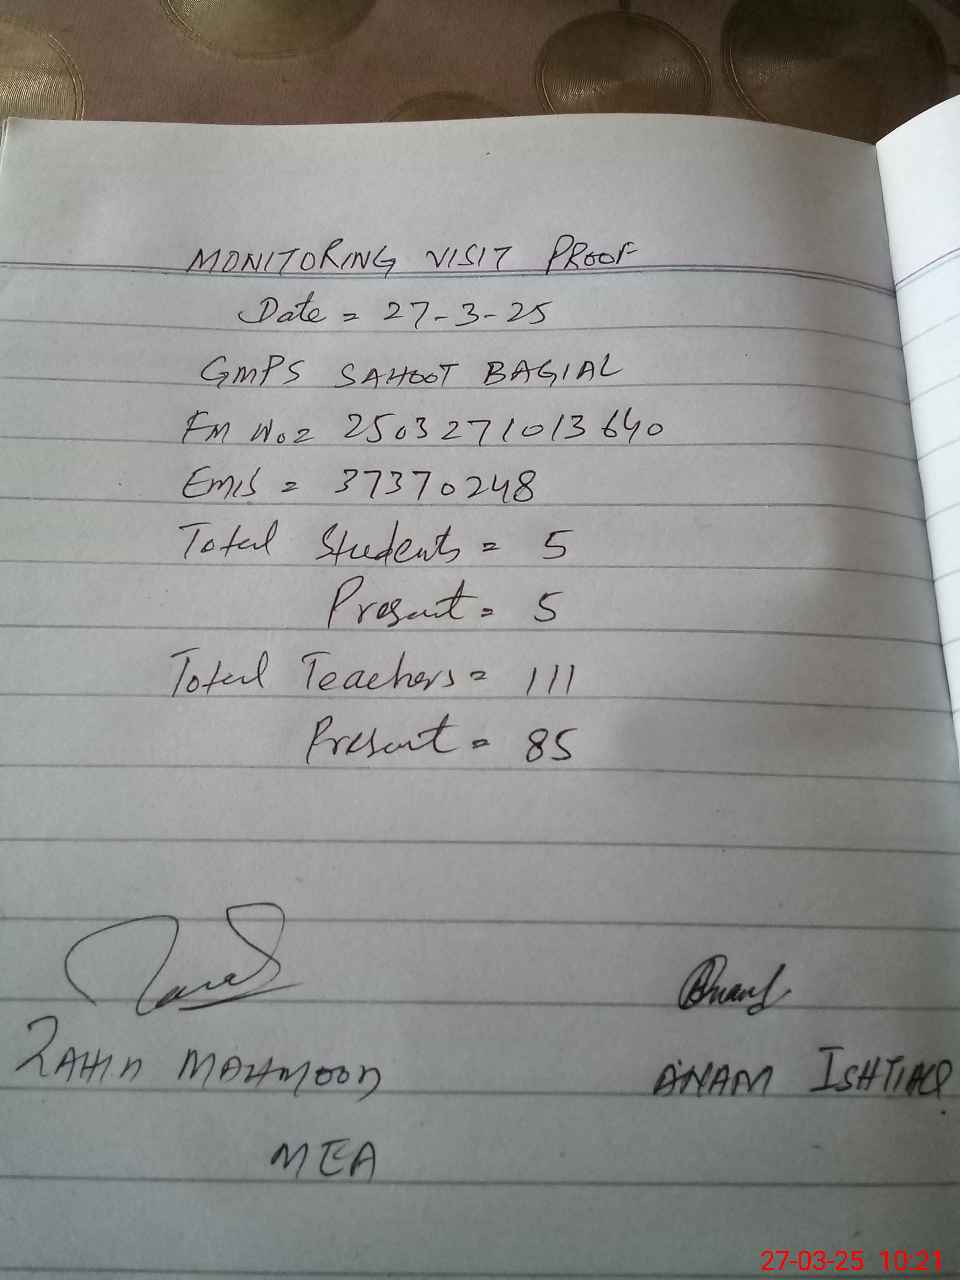 MONITORING VISIT PROOF
Date = 27-3-25
GMPS SAHOOT BAGIAL
FM No = 2503271013640
Emis = 37370248
Total Students = 5
Present = 5
Total Teachers = 111
Present = 85
ZAHID MAHMOOD
ANAM ISHTIAQ
MEA
27-03-25 10:21